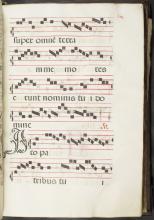 super omnē terra
mine mo tes
e runt nominis tu i do
mine
to pa
tribus tu i